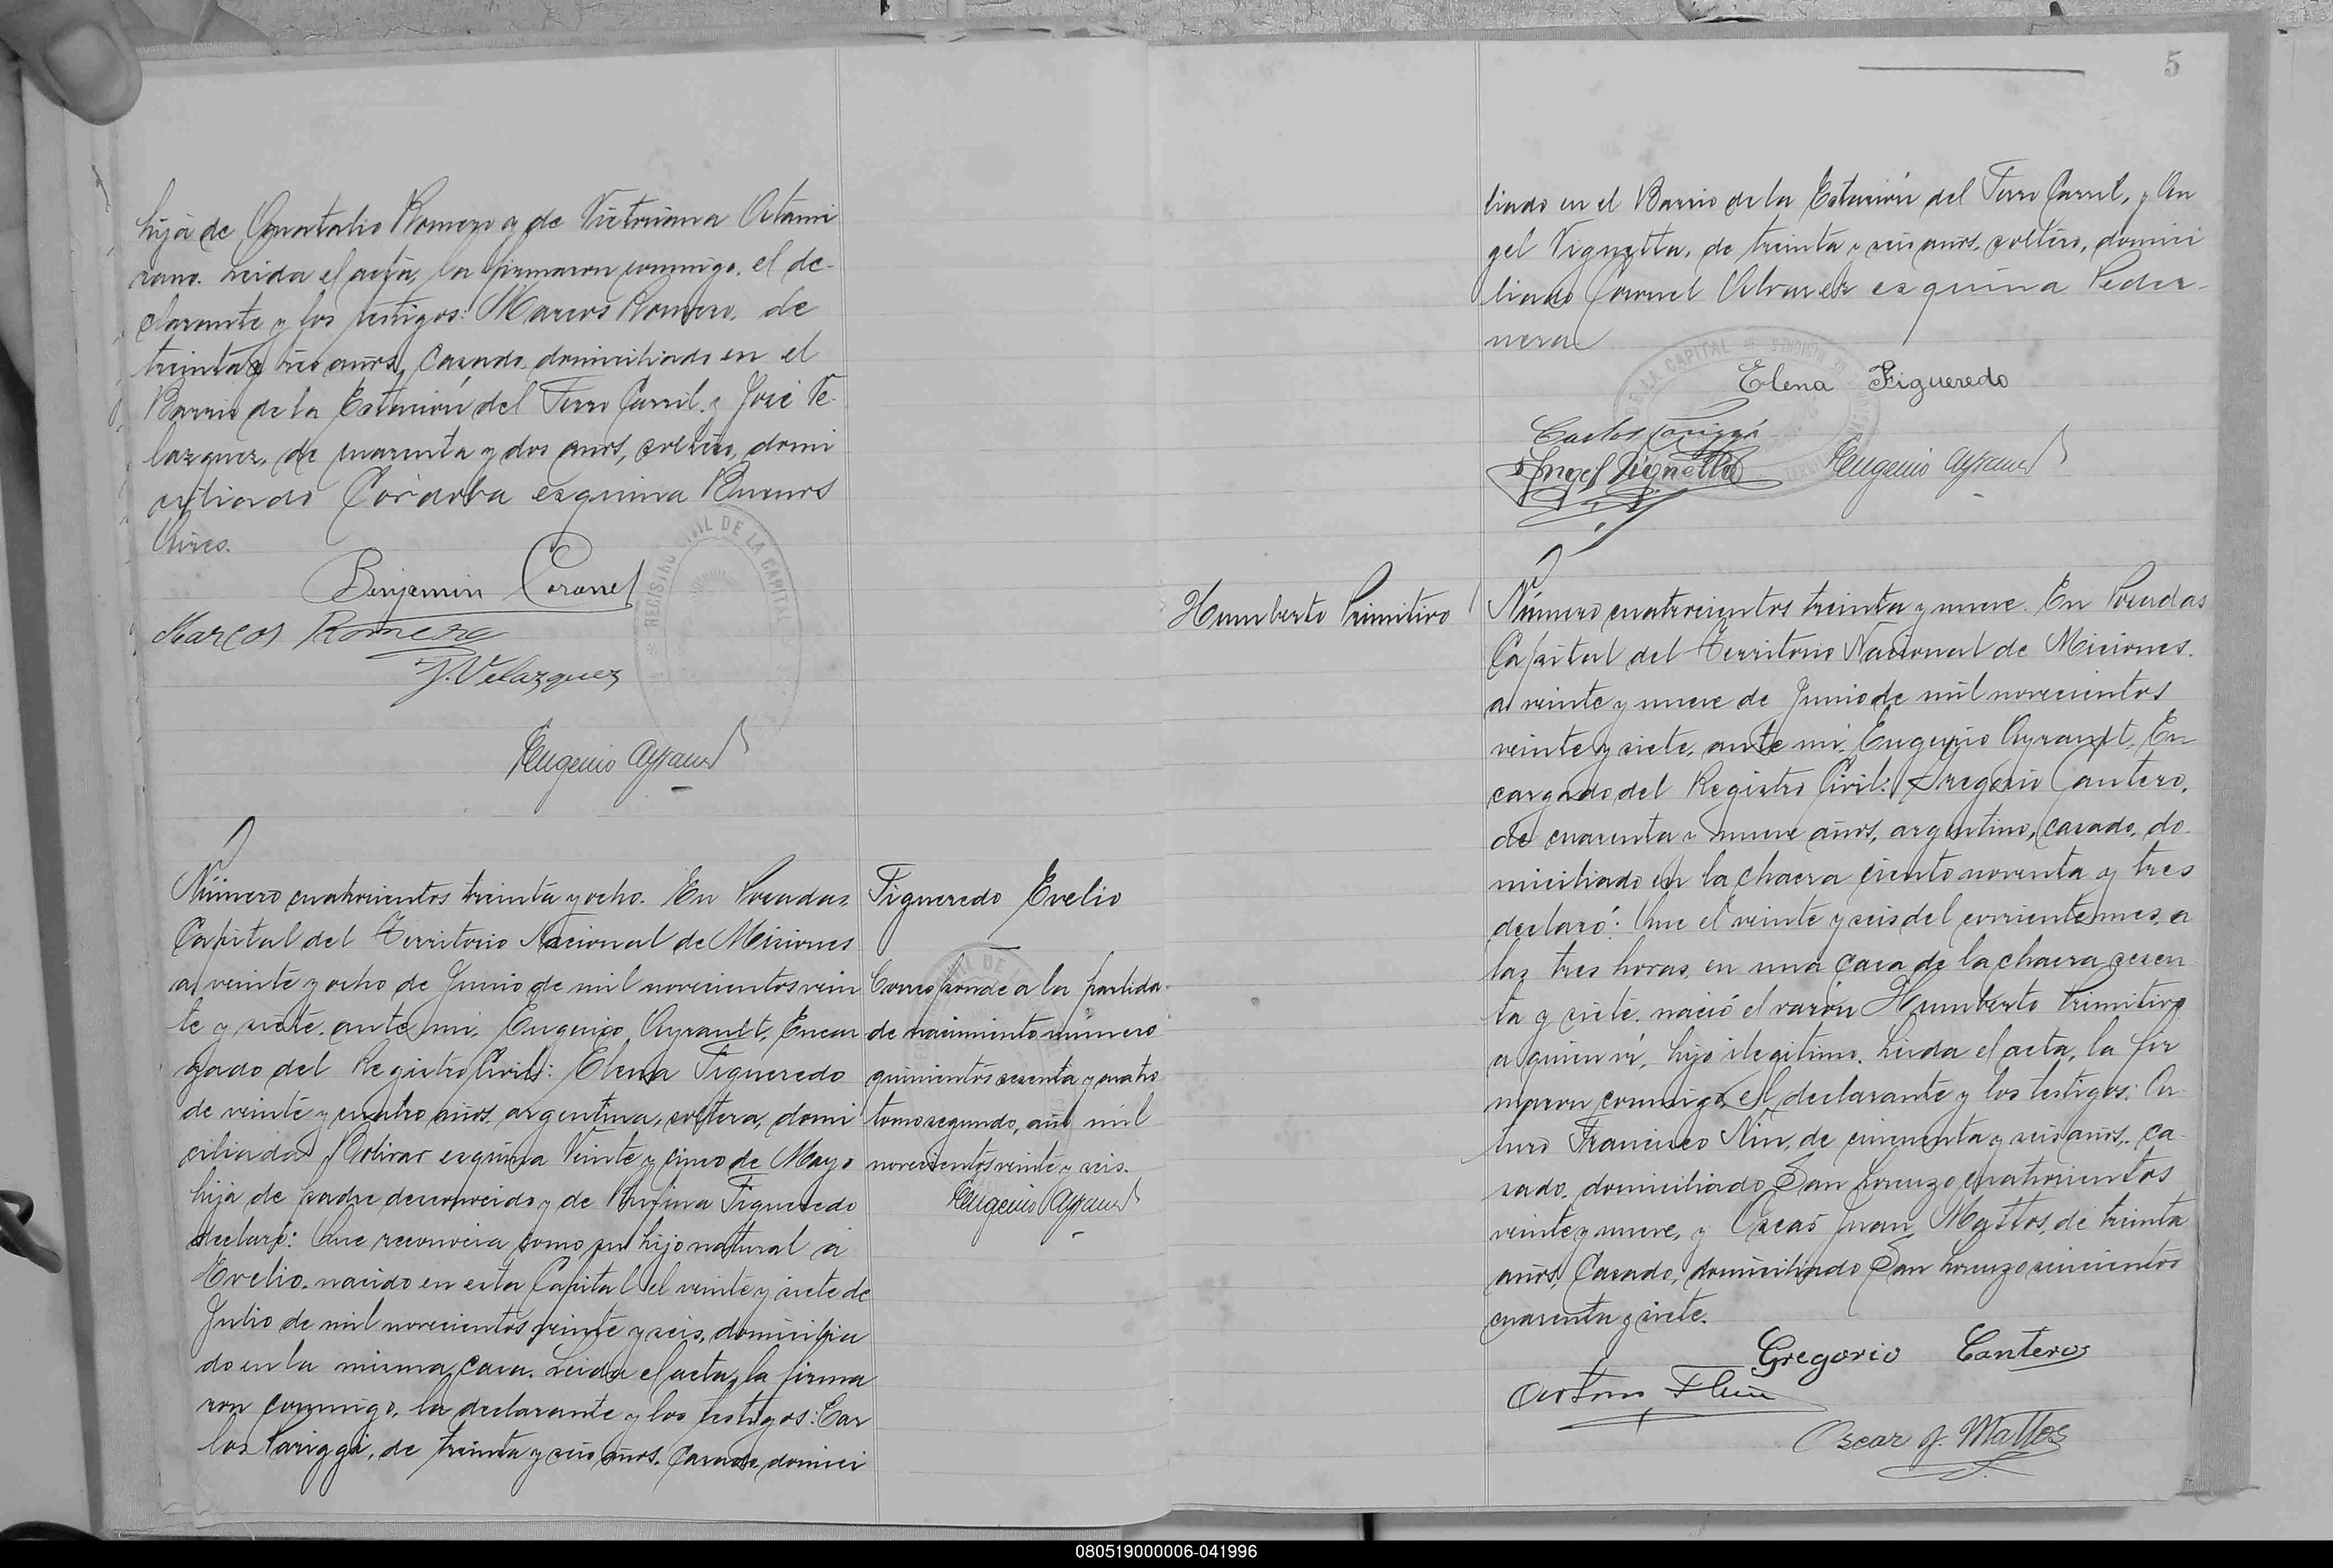 hija de Romero y de Victoriana Altami
rano. Leida el acta, la firmaron conmigo, el de-
clarante y los testigos: Marcos Romero, de
treinta y tres años, casado, domiciliado en el
Barrio de la Estación del Ferro Carril, y José Ve-
lazquez, de cuarenta y dos años, soltero, domi
ciliado Córdoba esquina Buenos
Aires.
Benjamin Coronel
Marcos Romero
J. Velazquez
REGISTRO CIVIL DE LA CAPITAL
Eugenio Ayrault
Número cuatrocientos treinta y ocho. En Posadas,
Capital del Territorio Nacional de Misiones
a veinte y ocho de Junio de mil novecientos vein
te y siete, ante mi, Eugenio Ayrault, Encar
gado del Registro Civil: Elena Figueredo
de veinte y cuatro años, argentina, soltera, domi
ciliada Bolivar esquina Veinte y cinco de Mayo
hija de padre desconocido y de Rufina Figueredo
declaró: Que reconocia como su hijo natural a
Evelio, nacido en esta Capital el veinte y siete de
Julio de mil novecientos veinte y seis, domicilia
do en la misma casa. Leida el acta, la firma
ron conmigo, la declarante y los testigos: Car
los Pariggi, de treinta y seis años, casado, domici
Figueredo Evelio
Corresponde a la partida
de nacimiento número
quinientos sesenta y cuatro
tomo segundo, año mil
novecientos veinte y seis.
Eugenio Ayrault
5
liado en el Barrio de la Estación del Ferro Carril, y An
gel Vignetta, de treinta y seis años, soltero, domici
liado Coronel Alvarez esquina Peder-
nera
LA CAPITAL * MISIONES
Elena Figueredo
Carlos Pariggi
Angel Vignetta
Eugenio Ayrault
Humberto Primitivo
Número cuatrocientos treinta y nueve. En Posadas
Capital del Territorio Nacional de Misiones,
a veinte y nueve de Junio de mil novecientos
veinte y siete, ante mi, Eugenio Ayrault, En-
cargado del Registro Civil: Gregorio Cantero,
de cuarenta y nueve años, argentino, casado, do-
miciliado en la chacra ciento noventa y tres
declaró: Que el veinte y seis del corriente mes, a
las tres horas, en una casa de la chacra sesen
ta y siete, nació el varon Humberto Primitivo
a quien ví, hijo ilegitimo. Leida el acta, la fir
maron conmigo, el declarante y los testigos: Ar
turo Francisco Nin, de cincuenta y seis años, ca-
sado, domiciliado San Lorenzo cuatrocientos
veinte y nueve, y Oscar Juan Mattos, de treinta
años, casado, domiciliado San Lorenzo seiscientos
cuarenta y siete.
Gregorio Canteros
Arturo F Nin
Oscar J. Mattos
080519000006-041996